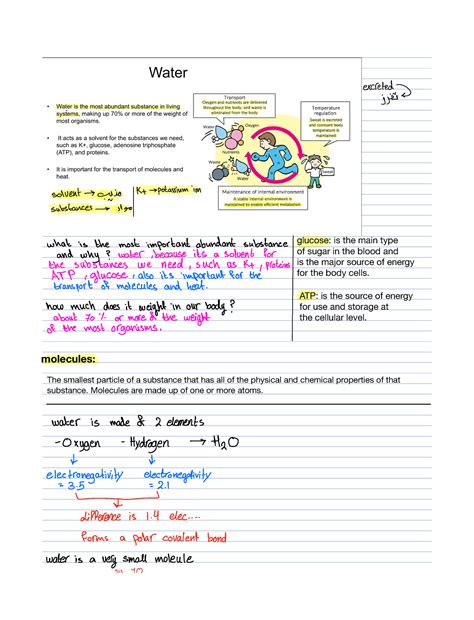 Water
excreted
تفرز
• Water is the most abundant substance in living
systems, making up 70% or more of the weight of
most organisms.
• It acts as a solvent for the substances we need,
such as K+, glucose, adenosine triphosphate
(ATP), and proteins.
• It is important for the transport of molecules and
heat.
solvent → مذيب
substances → مواد
K+ → potassium ion
Transport
Oxygen and nutrients are delivered
throughout the body, and waste is
eliminated from the body
Water
Oxygen
Nutrients
Waste
Water
Temperature
regulation
Sweat is excreted
and constant body
temperature is
maintained
Sweat
Maintenance of internal environment
A stable internal environment is
maintained to enable efficient metabolism
what is the most important abundant substance
and why ? water, because its a solvent for
the substances we need, such as K+, proteins
ATP, glucose, also its important for the
transport of molecules and heat.
how much does it weight in our body ?
about 70 % or more of the weight
of the most organisms.
glucose: is the main type
of sugar in the blood and
is the major source of energy
for the body cells.
ATP: is the source of energy
for use and storage at
the cellular level.
molecules:
The smallest particle of a substance that has all of the physical and chemical properties of that
substance. Molecules are made up of one or more atoms.
water is made of 2 elements
- Oxygen - Hydrogen → H2O
electronegativity electronegativity
= 3.5 = 2.1
difference is 1.4 elec....
forms a polar covalent bond
water is a very small molecule